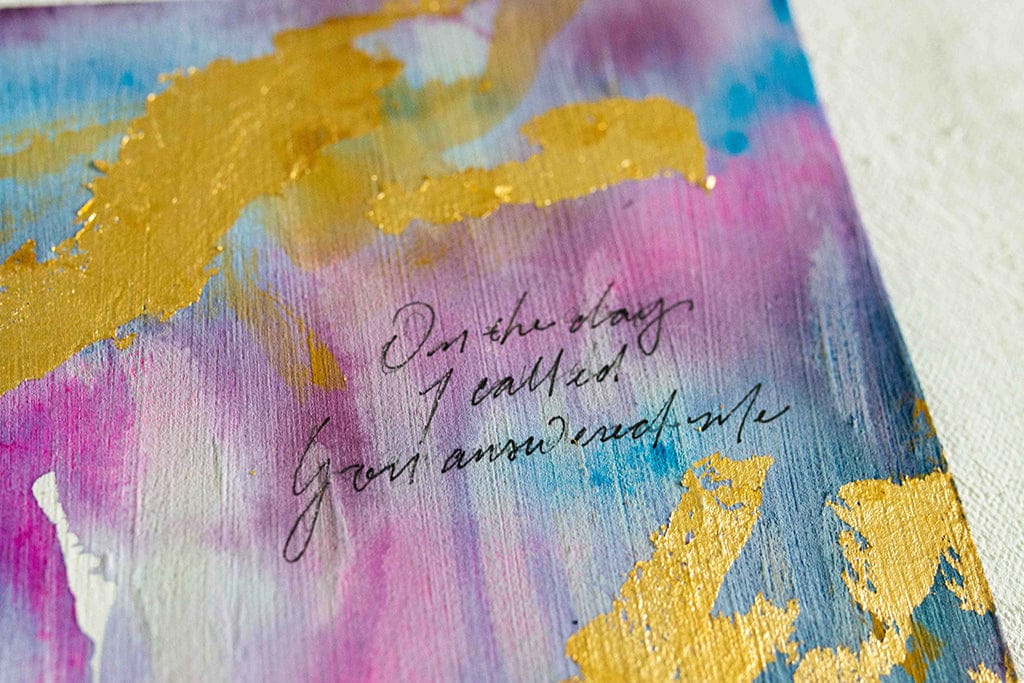 On the day
I called
You answered me